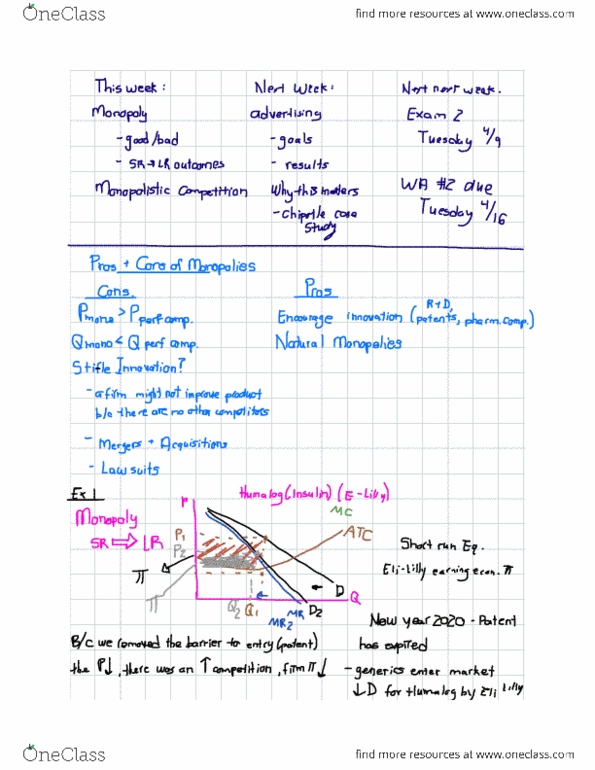 OneClass
find more resources at www.oneclass.com
This week:
Monopoly
- good/bad
- SR → LR outcomes
Monopolistic Competition
Next Week:
advertising
- goals
- results
Why this matters
- Chipotle case
study
Next next week.
Exam 2
Tuesday 4/9
WA #2 due
Tuesday 4/16
Pros + Cons of Monopolies
Cons
Pmono > P perf comp.
Qmono < Q perf comp.
Stifle Innovation?
- a firm might not improve product
b/c there are no other competitors
- Mergers + Acquisitions
- Lawsuits
Pros
Encourage innovation (R+D, patents, pharm. comp.)
Natural Monopolies
Ex 1
Humalog (Insulin) (E-Lilly)
Monopoly
SR ⇒ LR
P
P1
P2
π
π
MC
ATC
D
Q
Q2 Q1
MR
MR2
D2
Short run Eq.
Eli-Lilly earning econ. π
New year 2020 - Patent
has expired
- generics enter market
↓D for Humalog by Eli Lilly
B/c we removed the barrier to entry (patent)
the P↓, there was an ↑ competition, firm π ↓
OneClass
find more resources at www.oneclass.com